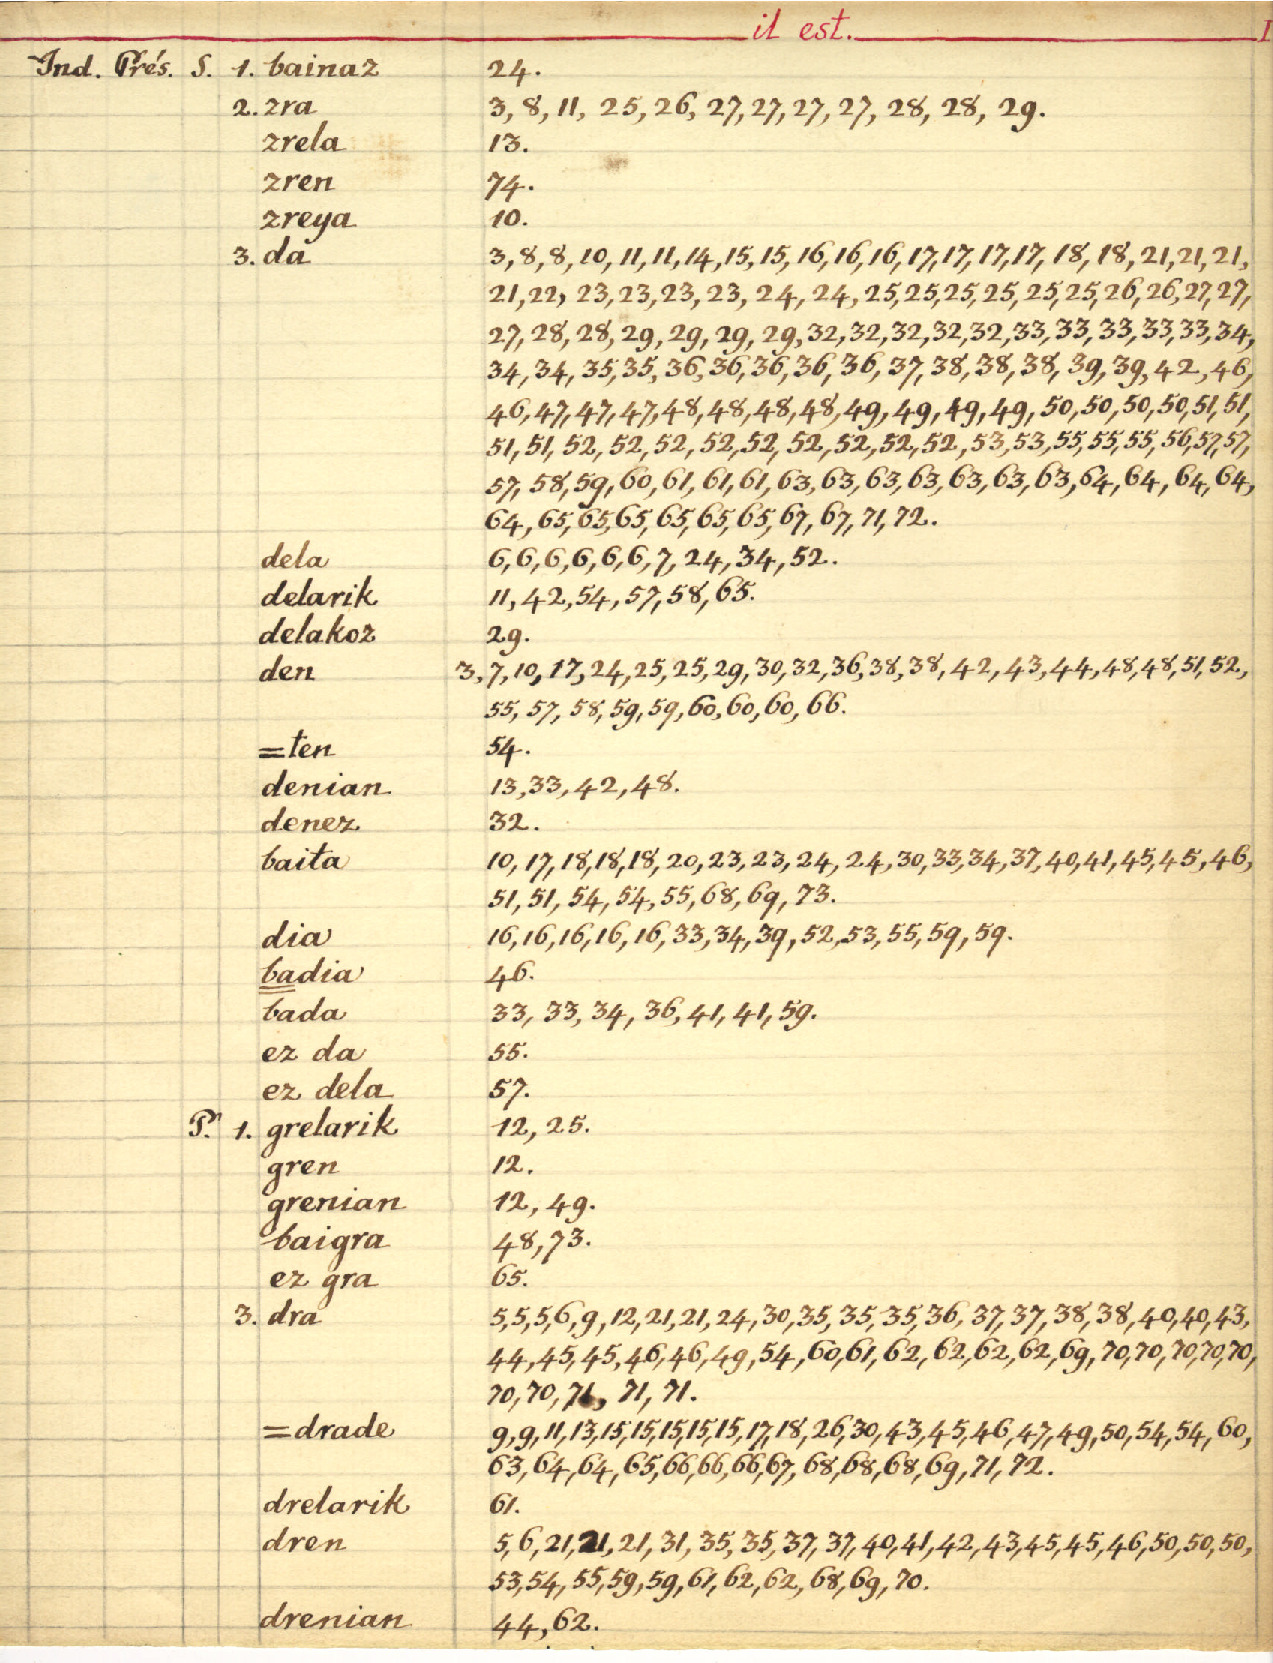 il est. I
Ind. Prés. S. 1. bainaz 24.
2. zra 3, 8, 11, 25, 26, 27, 27, 27, 27, 28, 28, 29.
zrela 13.
zren 74.
zreya 10.
3. da 3, 8, 8, 10, 11, 11, 14, 15, 15, 16, 16, 16, 17, 17, 17, 17, 18, 18, 21, 21, 21,
21, 22, 23, 23, 23, 23, 24, 24, 25, 25, 25, 25, 25, 25, 26, 26, 27, 27,
27, 28, 28, 29, 29, 29, 29, 32, 32, 32, 32, 32, 33, 33, 33, 33, 33, 34,
34, 34, 35, 35, 36, 36, 36, 36, 36, 37, 38, 38, 38, 39, 39, 42, 46,
46, 47, 47, 47, 48, 48, 48, 48, 49, 49, 49, 49, 50, 50, 50, 50, 51, 51,
51, 51, 52, 52, 52, 52, 52, 52, 52, 52, 52, 53, 53, 55, 55, 55, 56, 57, 57,
57, 58, 59, 60, 61, 61, 61, 63, 63, 63, 63, 63, 63, 63, 64, 64, 64, 64,
64, 65, 65, 65, 65, 65, 65, 67, 67, 71, 72.
dela 6, 6, 6, 6, 6, 6, 7, 24, 34, 52.
delarik 11, 42, 54, 57, 58, 65.
delakoz 29.
den 3, 7, 10, 17, 24, 25, 25, 29, 30, 32, 36, 38, 38, 42, 43, 44, 48, 48, 51, 52,
55, 57, 58, 59, 59, 60, 60, 60, 66.
=ten 54.
denian 13, 33, 42, 48.
denez 32.
baita 10, 17, 18, 18, 18, 20, 23, 23, 24, 24, 30, 33, 34, 37, 40, 41, 45, 45, 46,
51, 51, 54, 54, 55, 68, 69, 73.
dia 16, 16, 16, 16, 16, 33, 34, 39, 52, 53, 55, 59, 59.
badia 46.
bada 33, 33, 34, 36, 41, 41, 59.
ez da 55.
ez dela 57.
P. 1. grelarik 12, 25.
gren 12.
grenian 12, 49.
baigra 48, 73.
ez gra 65.
3. dra 5, 5, 5, 6, 9, 12, 21, 21, 24, 30, 35, 35, 35, 36, 37, 37, 38, 38, 40, 40, 43,
44, 45, 45, 46, 46, 49, 54, 60, 61, 62, 62, 62, 62, 69, 70, 70, 70, 70, 70,
70, 70, 71, 71, 71.
=drade 9, 9, 11, 13, 15, 15, 15, 15, 15, 17, 18, 26, 30, 43, 45, 46, 47, 49, 50, 54, 54, 60,
63, 64, 64, 65, 66, 66, 66, 67, 68, 68, 68, 69, 71, 72.
drelarik 61.
dren 5, 6, 21, 21, 21, 31, 35, 35, 37, 37, 40, 41, 42, 43, 45, 45, 46, 50, 50, 50,
53, 54, 55, 59, 59, 61, 62, 62, 68, 69, 70.
drenian 44, 62.